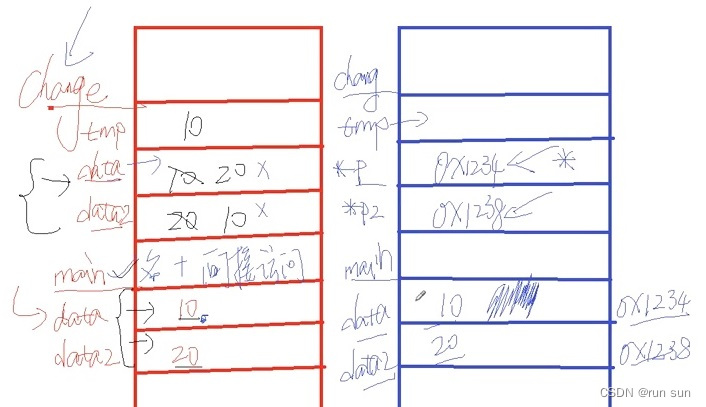 change
tmp 10
data 10 20 x
data2 20 10 x
main 名 + 间接访问
data 10
data2 20
chang
tmp
*P 0x1234 *
*p2 0x1238
main
data 10 0x1234
data2 20 0x1238
CSDN @run sun